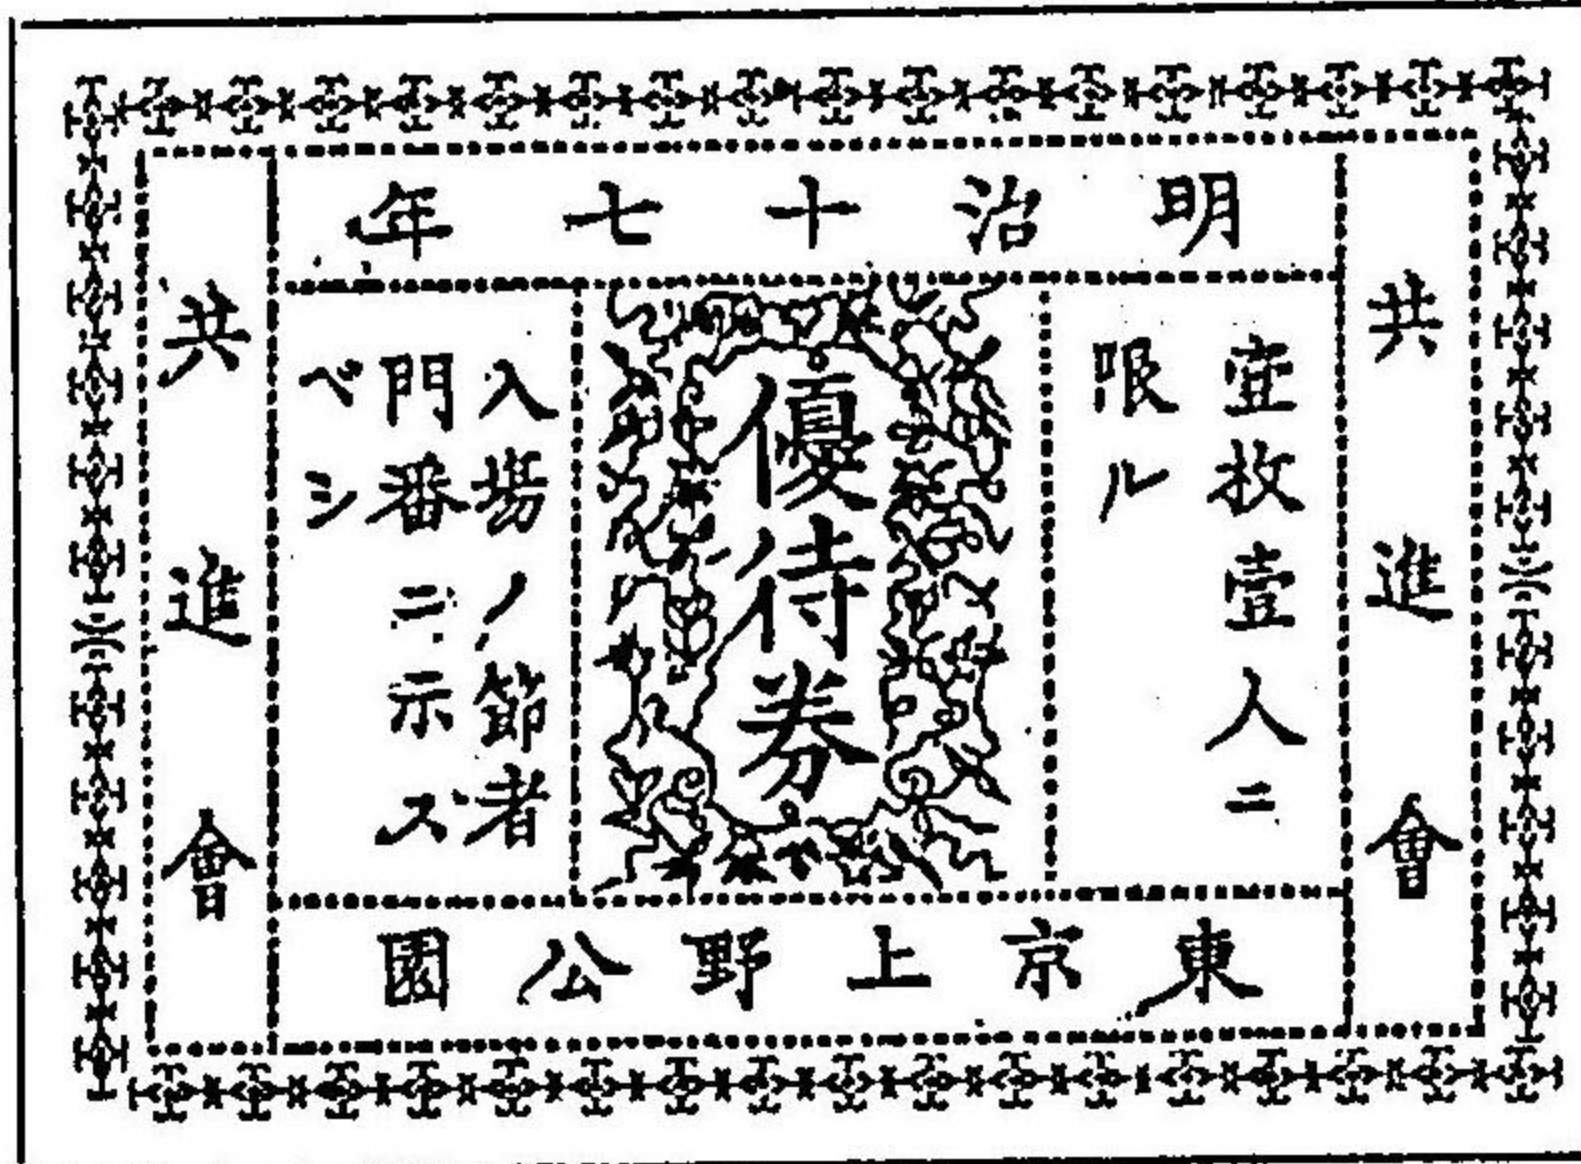 明治十七年
共進會
壹枚壹人ニ
限ル
優待券
入場ノ節者
門番ニ示ス
ベシ
共進會
東京上野公園